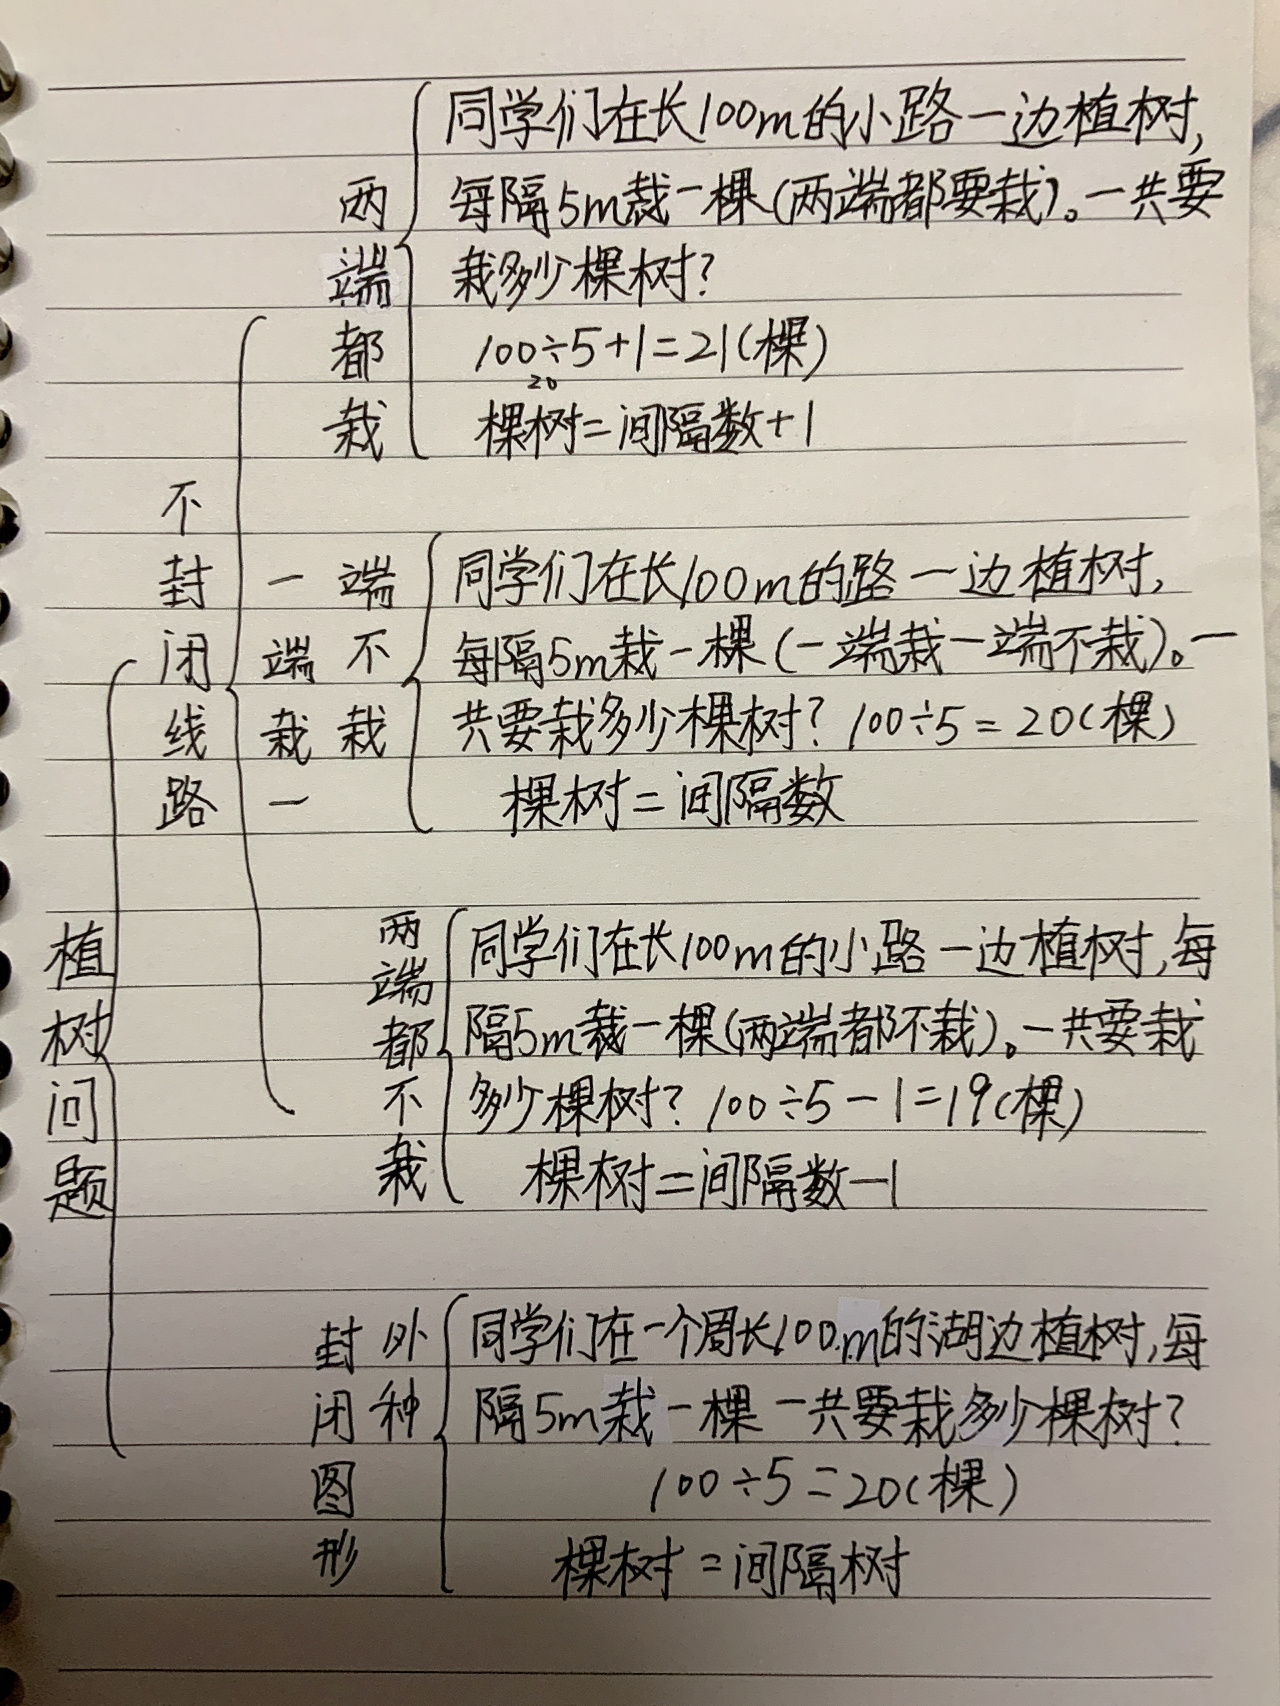 植树问题
不封闭线路
两端都栽
同学们在长100m的小路一边植树,
每隔5m栽一棵(两端都要栽)。一共要
栽多少棵树?
100÷5+1=21(棵)
20
棵树=间隔数+1
一端栽一
端不栽
同学们在长100m的路一边植树,
每隔5m栽一棵(一端栽一端不栽)。一
共要栽多少棵树? 100÷5=20(棵)
棵树=间隔数
两端都不栽
同学们在长100m的小路一边植树,每
隔5m栽一棵(两端都不栽)。一共要栽
多少棵树? 100÷5-1=19(棵)
棵树=间隔数-1
封闭图形
外种
同学们在一个周长100m的湖边植树,每
隔5m栽一棵一共要栽多少棵树?
100÷5=20(棵)
棵树=间隔树